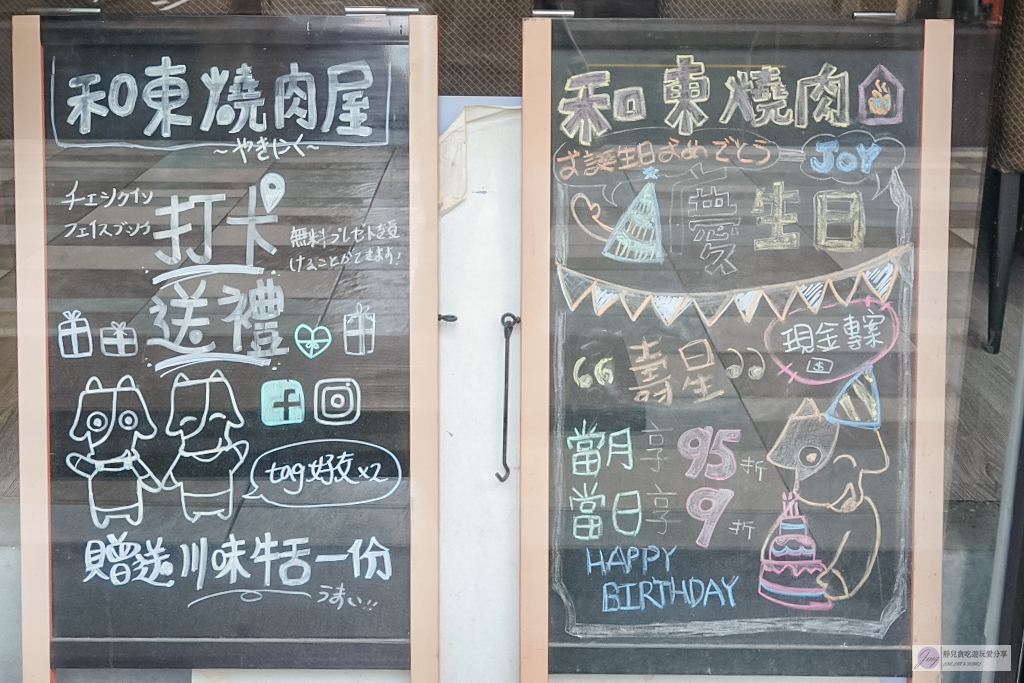 和東燒肉屋
~やきにく~
チェックイン
フェイスブック
打卡
無料プレゼトを受
けることができます!
送禮
tag好友x2
贈送川味牛舌一份
うまい!!
和東燒肉
お誕生日おめでとう
JOY
慶生日
現金專案
$
“壽星”
當月享95折
當日享9折
HAPPY
BIRTHDAY
靜兒貪吃遊玩愛分享